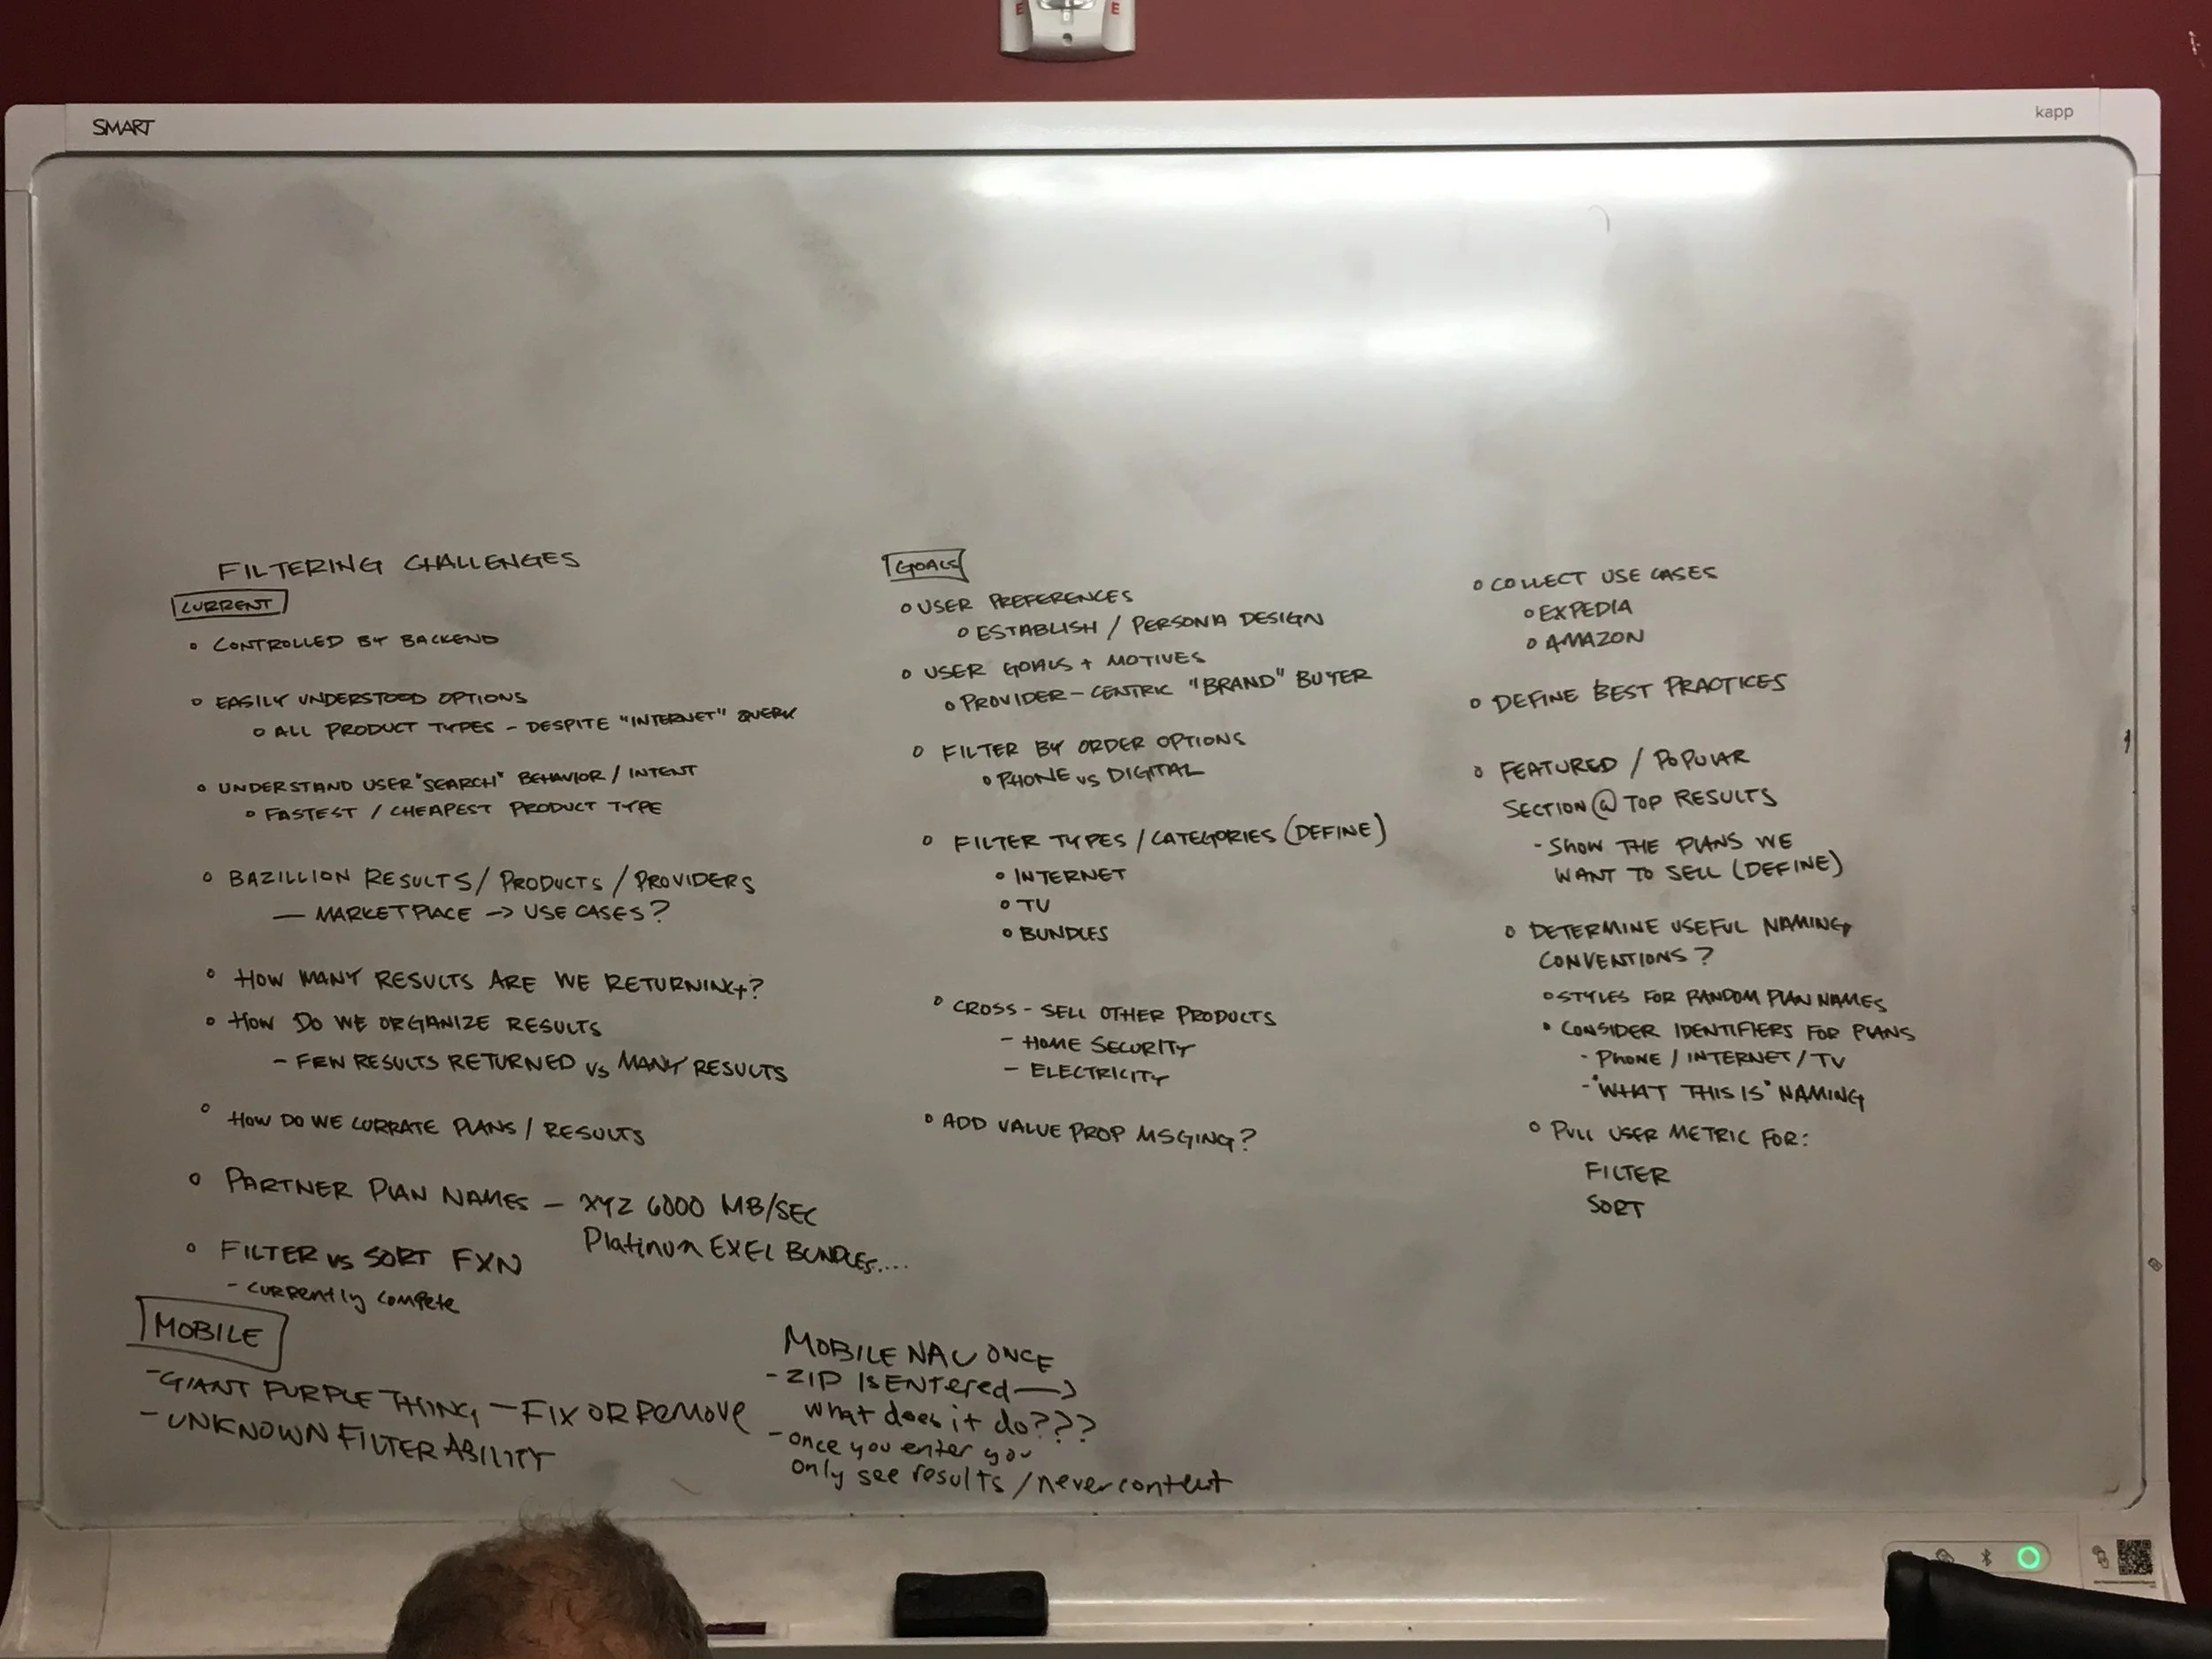 SMART
kapp
FILTERING CHALLENGES
CURRENT
◦ CONTROLLED BY BACKEND
◦ EASILY UNDERSTOOD OPTIONS
◦ ALL PRODUCT TYPES - DESPITE "INTERNET" QUERY
◦ UNDERSTAND USER "SEARCH" BEHAVIOR / INTENT
◦ FASTEST / CHEAPEST PRODUCT TYPE
◦ BAZILLION RESULTS / PRODUCTS / PROVIDERS
— MARKETPLACE -> USE CASES?
◦ HOW MANY RESULTS ARE WE RETURNING?
◦ HOW DO WE ORGANIZE RESULTS
- FEW RESULTS RETURNED VS MANY RESULTS
◦ HOW DO WE CURRATE PLANS / RESULTS
◦ PARTNER PLAN NAMES — XYZ 6000 MB/SEC
Platinum EXEL BUNDLES....
◦ FILTER VS SORT FXN
- CURRENTLY COMPETE
MOBILE
- GIANT PURPLE THING — FIX OR REMOVE
- UNKNOWN FILTER ABILITY
MOBILE NAV ONCE
- ZIP IS ENTERED —>
what does it do???
- once you enter you
only see results / never content
GOALS
◦ USER PREFERENCES
◦ ESTABLISH / PERSONA DESIGN
◦ USER GOALS + MOTIVES
◦ PROVIDER-CENTRIC "BRAND" BUYER
◦ FILTER BY ORDER OPTIONS
◦ PHONE VS DIGITAL
◦ FILTER TYPES / CATEGORIES (DEFINE)
◦ INTERNET
◦ TV
◦ BUNDLES
◦ CROSS-SELL OTHER PRODUCTS
- HOME SECURITY
- ELECTRICITY
◦ ADD VALUE PROP MSGING?
◦ COLLECT USE CASES
◦ EXPEDIA
◦ AMAZON
◦ DEFINE BEST PRACTICES
◦ FEATURED / POPULAR
SECTION @ TOP RESULTS
- SHOW THE PLANS WE
WANT TO SELL (DEFINE)
◦ DETERMINE USEFUL NAMING
CONVENTIONS?
◦ STYLES FOR RANDOM PLAN NAMES
◦ CONSIDER IDENTIFIERS FOR PLANS
- PHONE / INTERNET / TV
- "WHAT THIS IS" NAMING
◦ PULL USER METRIC FOR:
FILTER
SORT